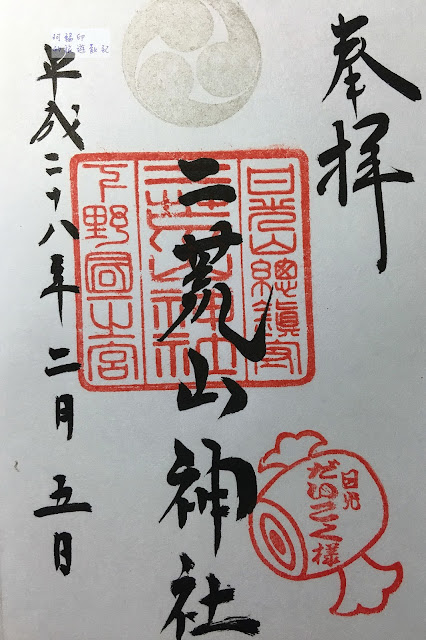 奉拝
日光山總鎮守
二荒山神社
下野国一之宮
二荒山神社
日光
だいこく様
平成二十八年二月五日